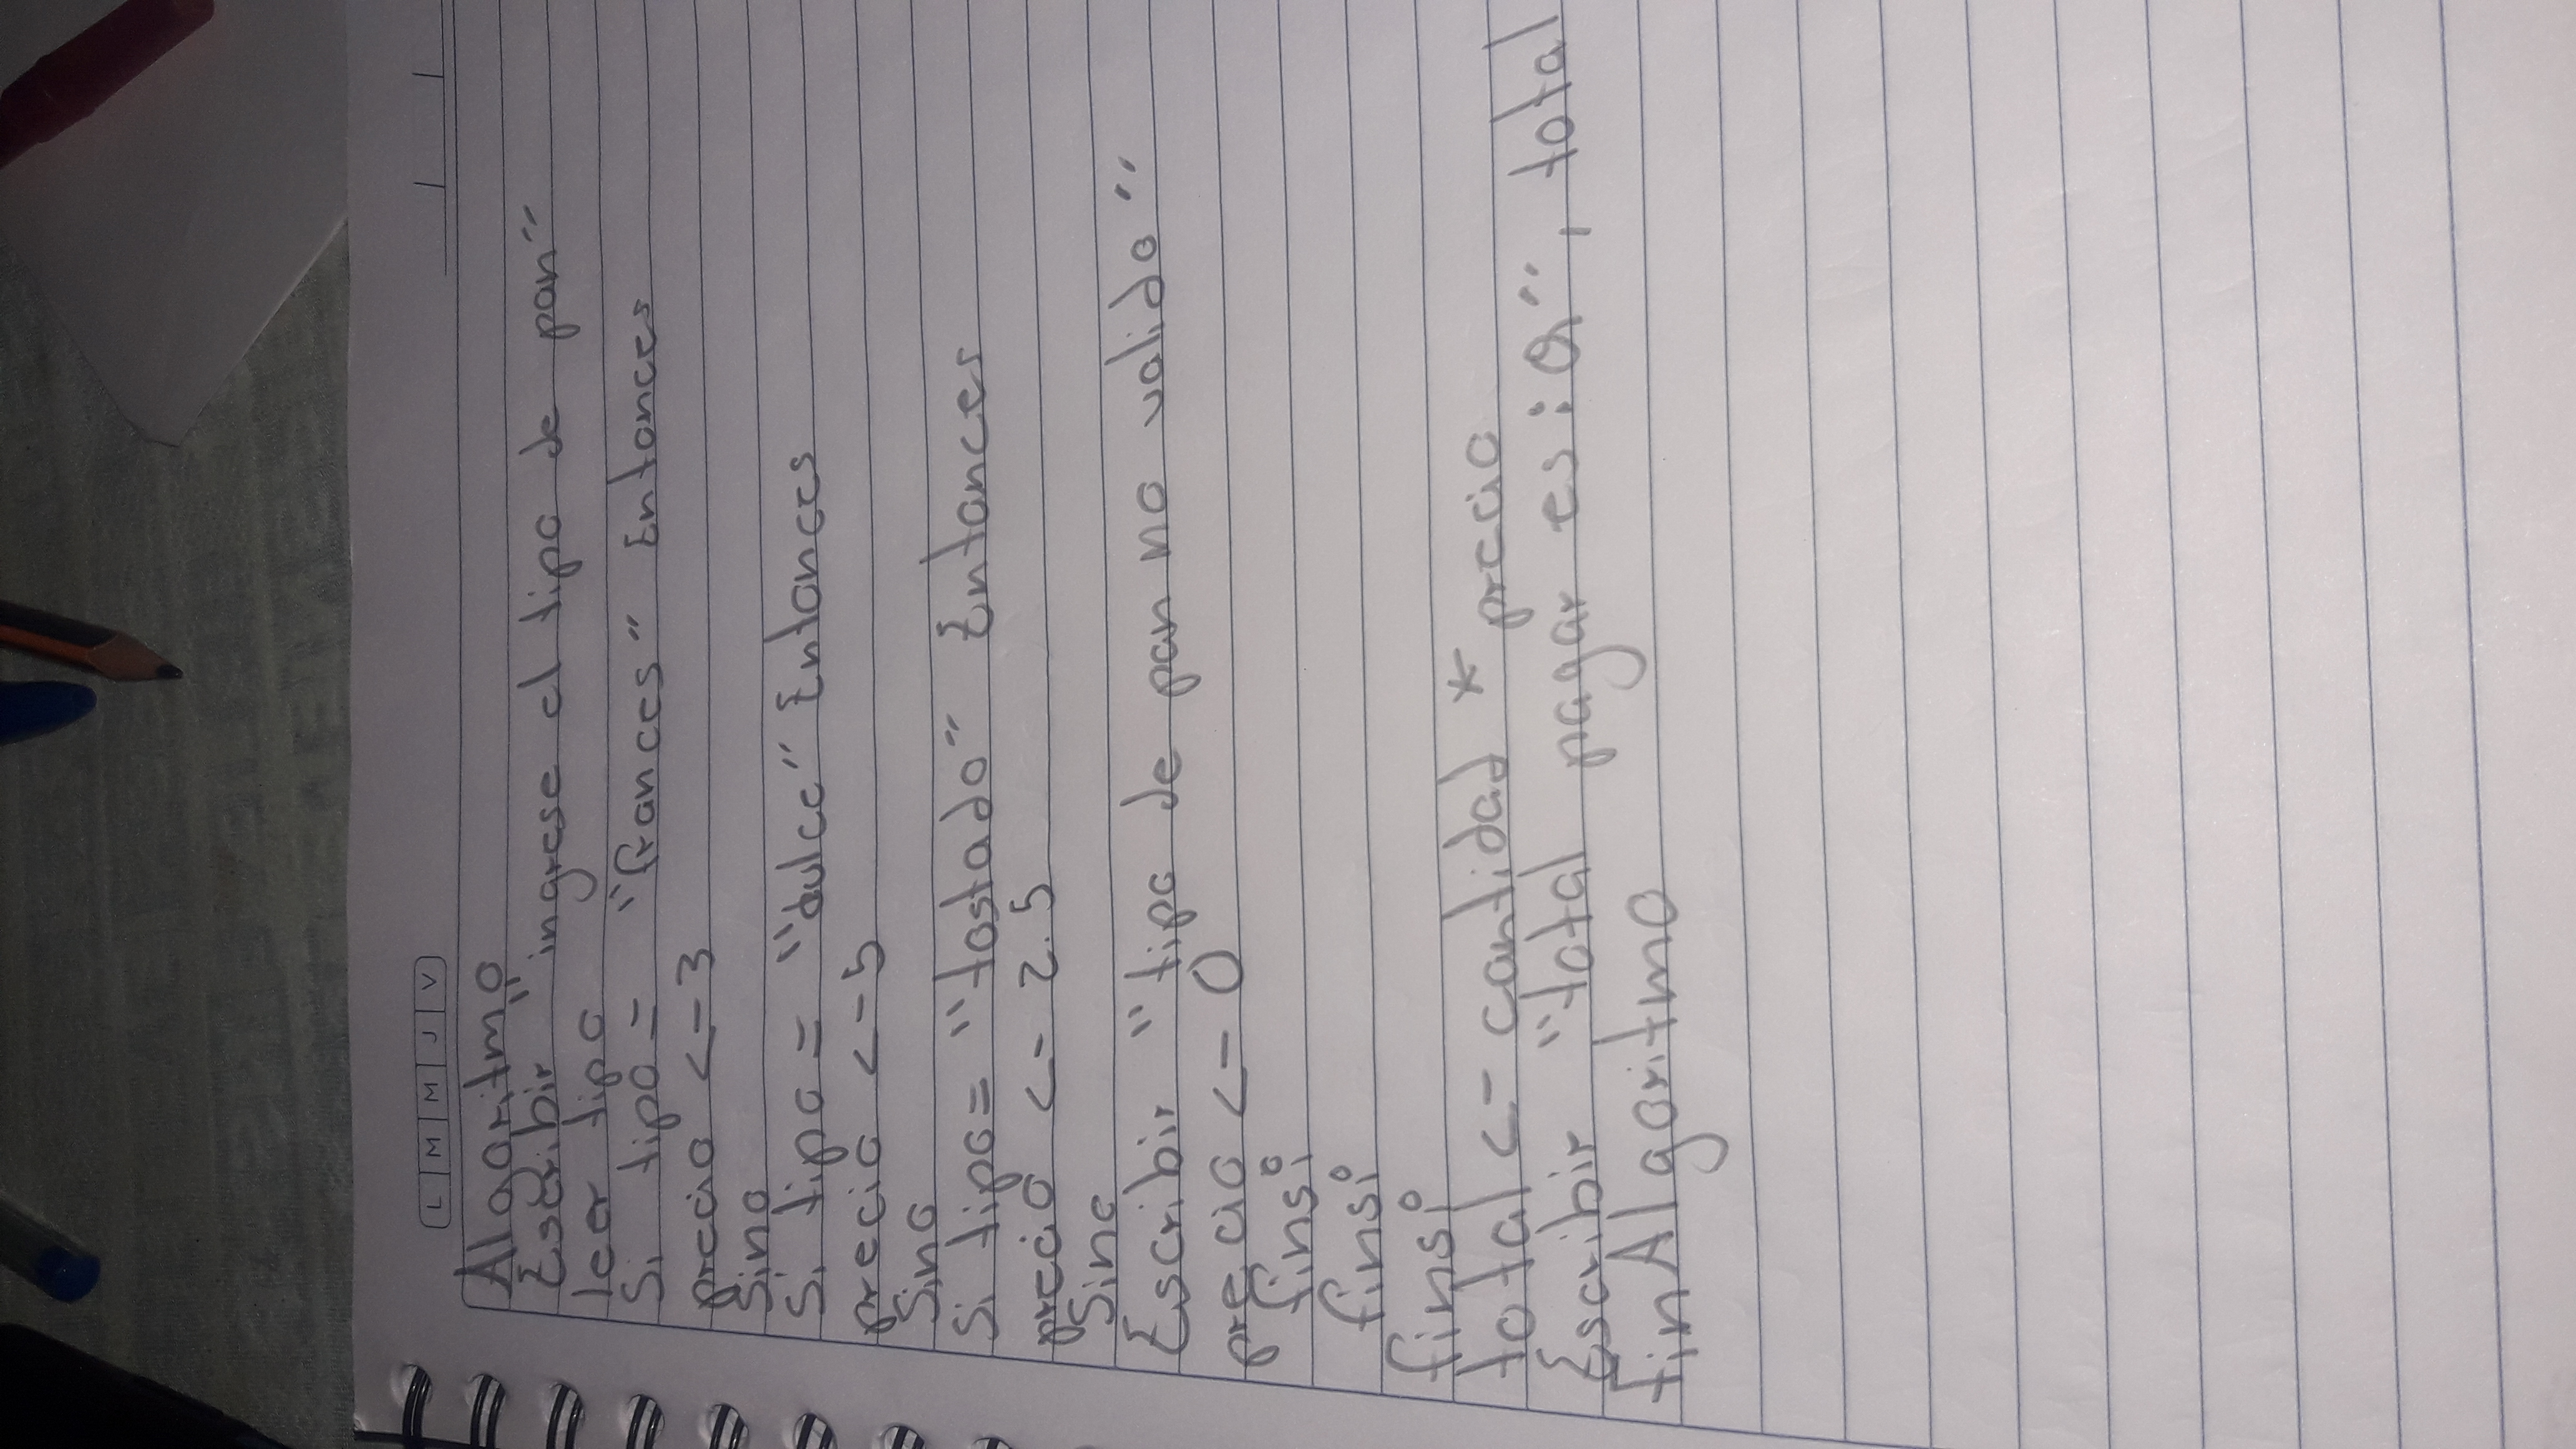 L M M J V
Algoritmo
Escribir " ingrese el tipo de pan"
leer tipo
Si tipo = "frances" Entonces
precio <- 3
Sino
Si tipo = "dulce" Entonces
precio <- 5
Sino
Si tipo = "tostado" Entonces
precio <- 2.5
Sino
Escribir "tipo de pan no valido"
precio <- 0
finsi
finsi
finsi
total <- cantidad * precio
Escribir "total pagar es: Q", total
fin Algoritmo